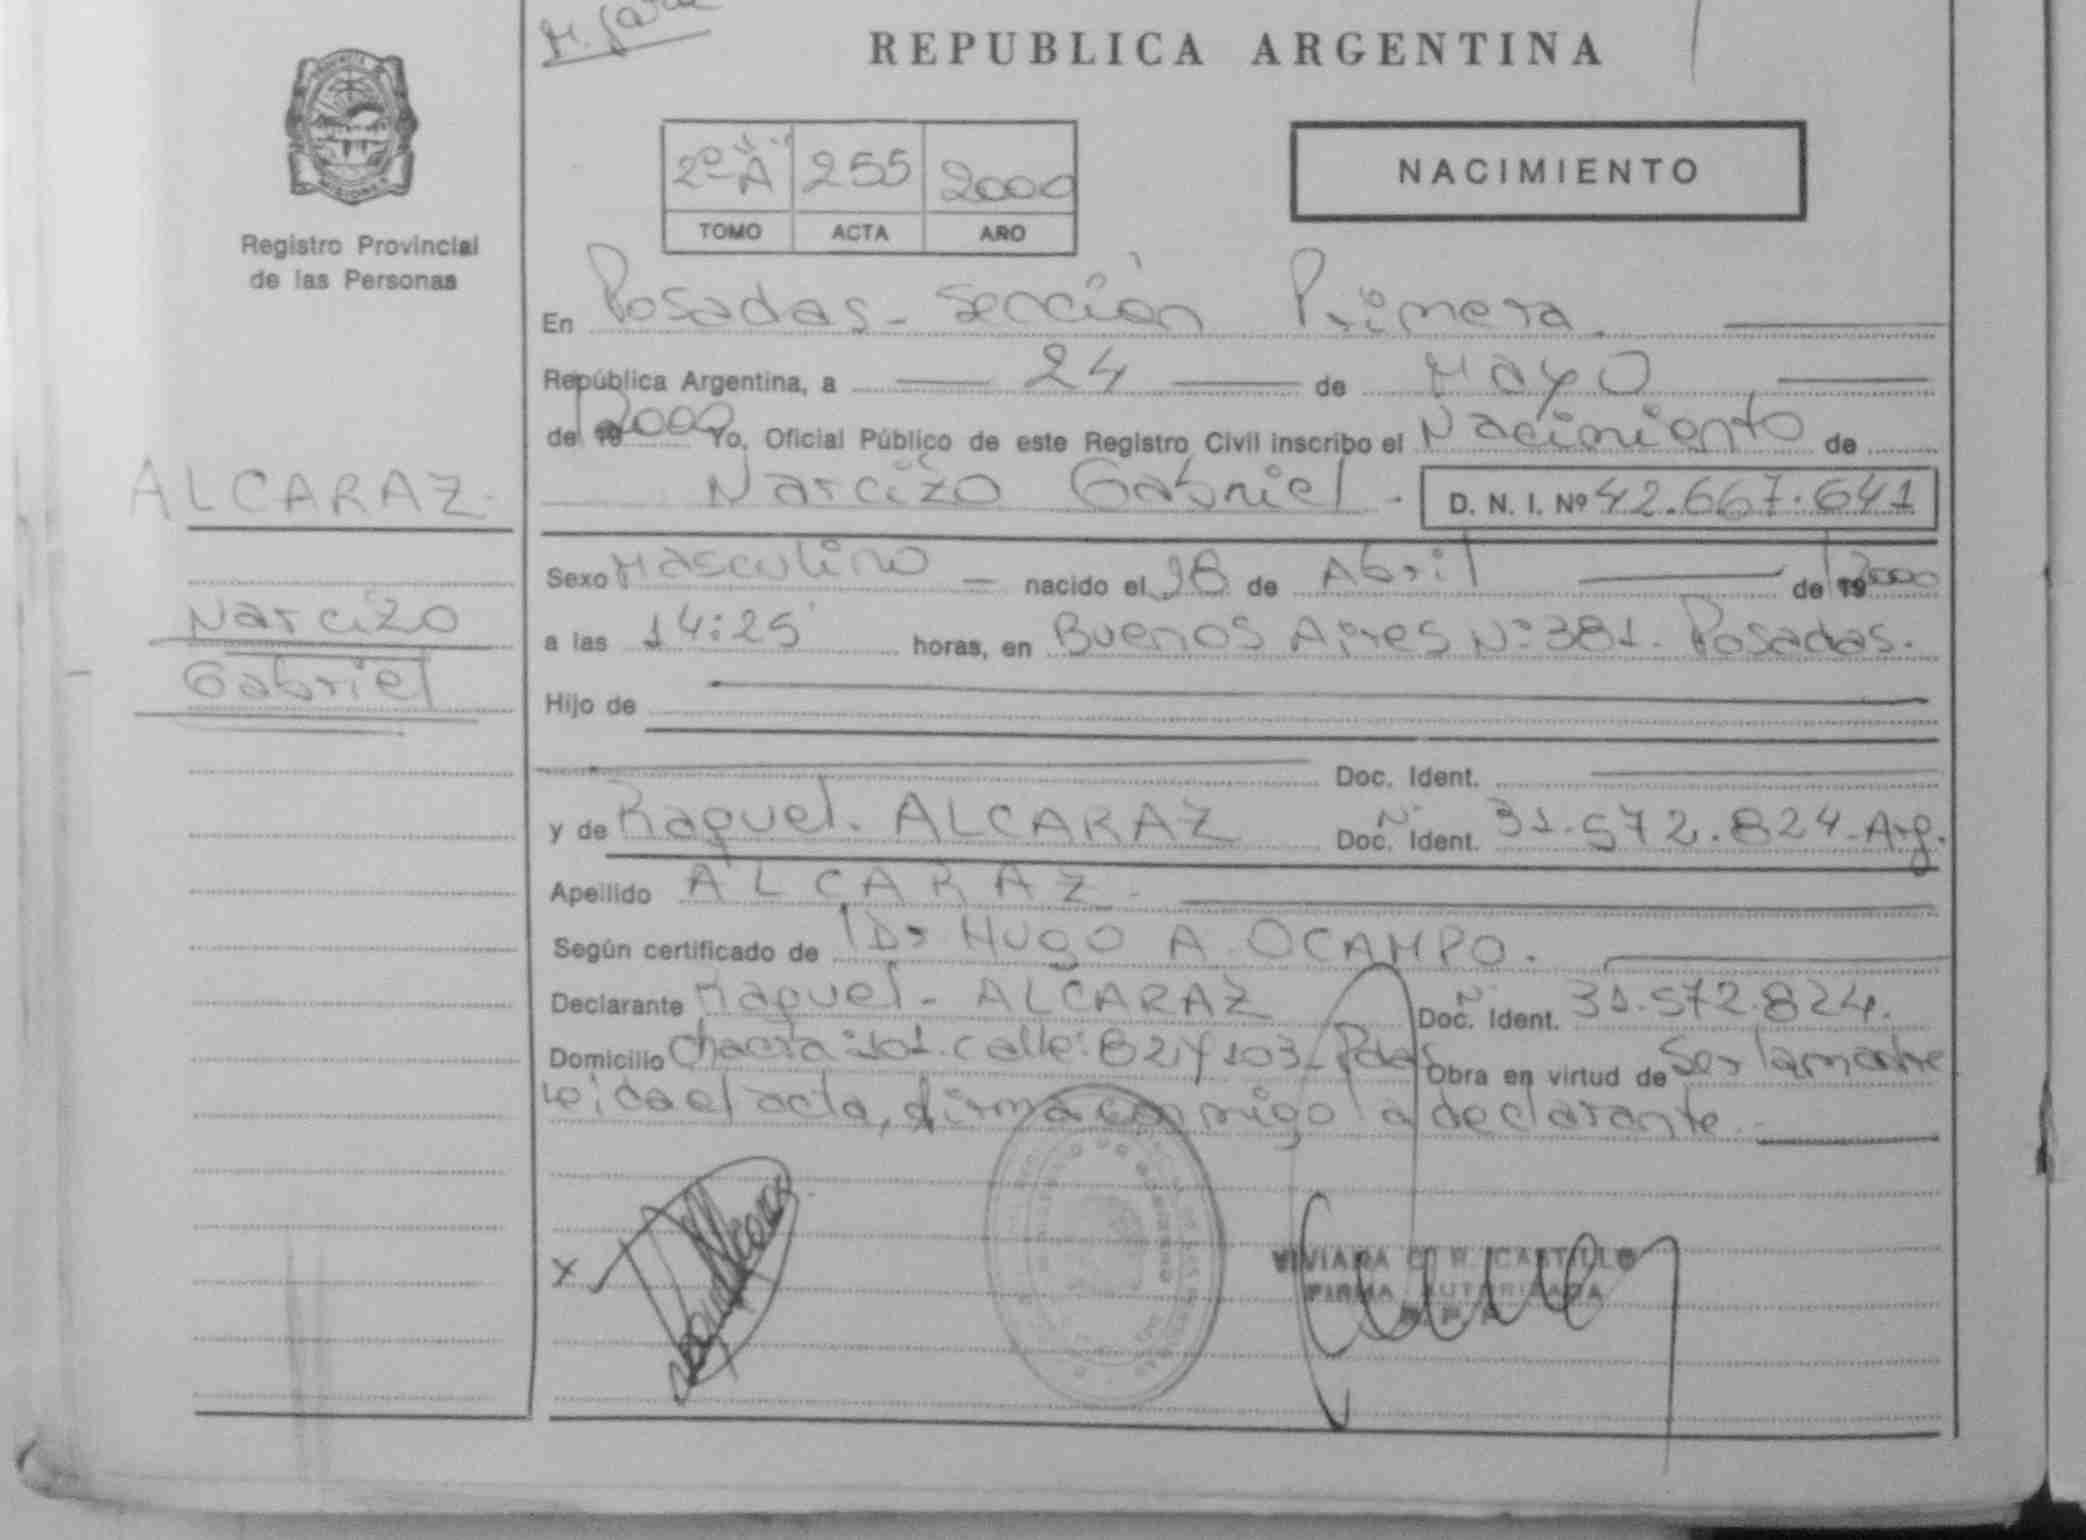 REPUBLICA ARGENTINA
Registro Provincial
de las Personas
2º "A" 255 2000
TOMO ACTA AÑO
NACIMIENTO
En Posadas - Sección Primera.
República Argentina, a 24 de Mayo
de 2000 Yo, Oficial Público de este Registro Civil inscribo el Nacimiento de
Narcizo Gabriel. D. N. I. Nº 42.667.641
ALCARAZ.
Narcizo
Gabriel
Sexo Masculino nacido el de Abril de 19 2000
a las 14:25 horas, en Buenos Aires Nº 381. Posadas.
Hijo de
Doc. Ident.
y de Raquel. ALCARAZ Doc. Ident. Nº 31.572.824-Arg.
Apellido ALCARAZ.
Según certificado de Dr HUGO A. OCAMPO.
Declarante Raquel - ALCARAZ Doc. Ident. Nº 31.572.824.
Domicilio Chacra 101. Calle: 82 y 103 - Pdas Obra en virtud de Ser la madre
leida el acta, firma conmigo la declarante.
X
VIVIANA C. R. CASTILLO
FIRMA AUTORIZADA